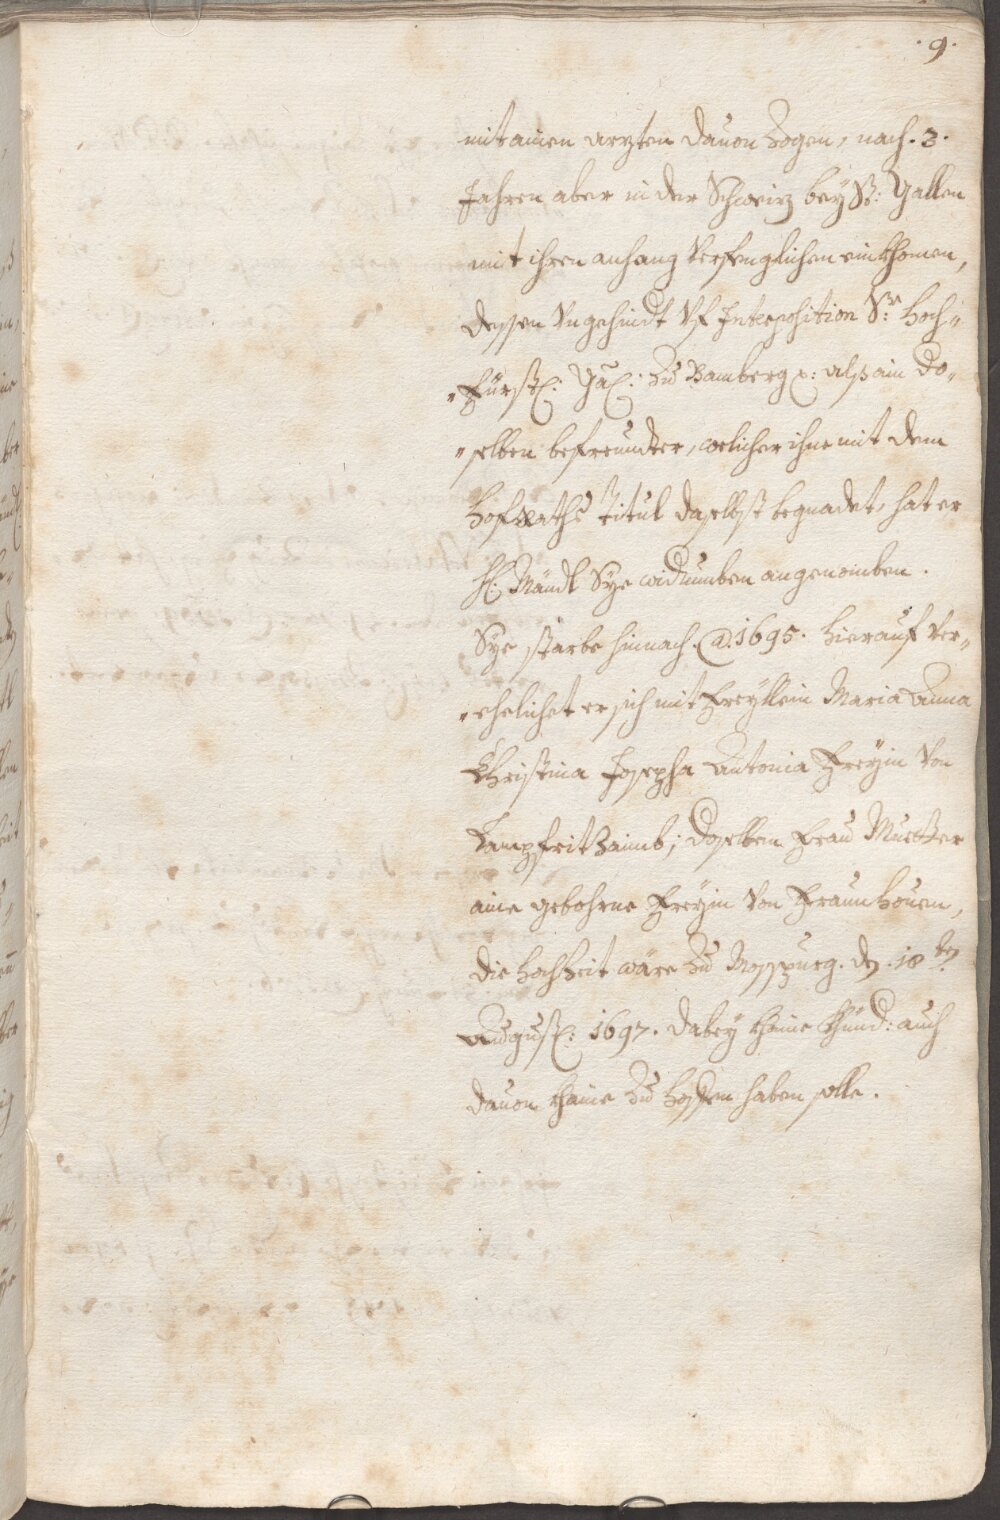 .9.
mit ainen arzten dauon zogen, nach .3.
Jahren aber in der Schweiz bey St: Gallen
mit ihren anhang Verfenglichen einkhomen,
dessen Vngehindt Vf Interposition Sr: Hoch=
=Fürstl: Gd: zu Bamberg x: alß ain do=
=selben befreundter, welicher ihne mit dem
Hofraths Titul daselbst begnadet, hat er
H: Mändl Sye widerumben angenomben.
Sye starbe hinnach. Ao. 1695. hierauf Ver=
=ehelichet er sich mit Freyllein Maria Anna
Christina Josepha Antonia Freyin Von
Lampfritzaimb; doselben Frau Muetter
aine gebohrne Freyin Von Fraunhouen,
die Hochzeit wäre zu Mospurg. den .18ten
August: 1697. dabey khaine Khünd: auch
dauon khaine zu hoffen haben solle.